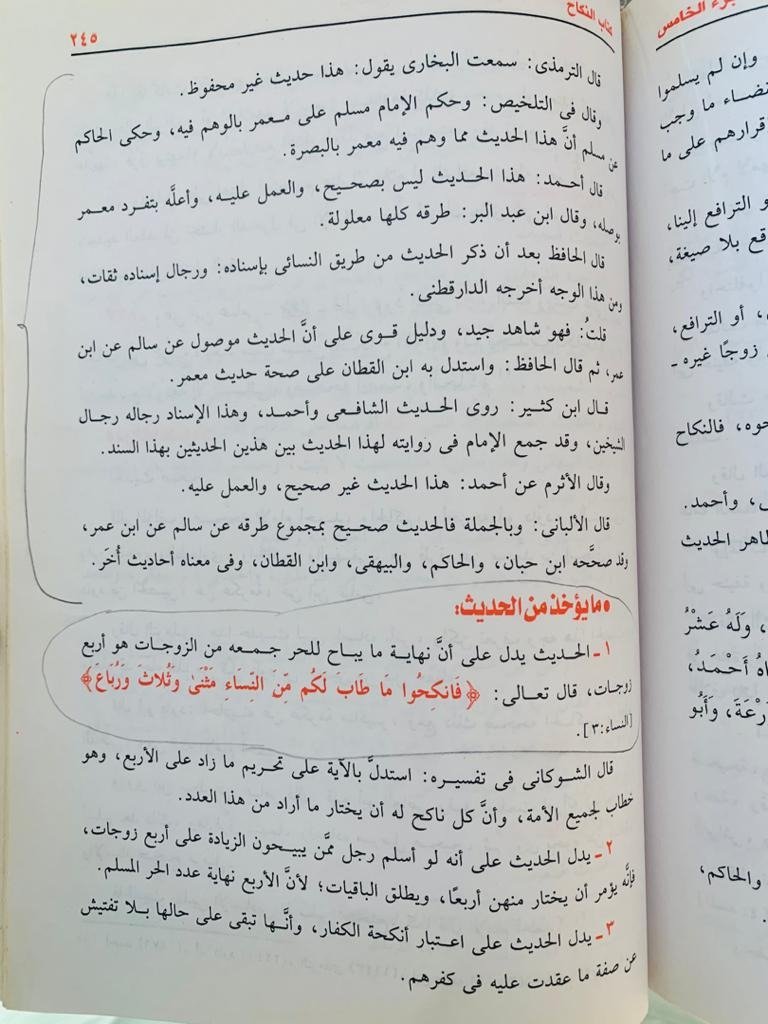 كتاب النكاح
٢٤٥
قال الترمذى: سمعت البخارى يقول: هذا حديث غير محفوظ.
وقال فى التلخيص: وحكم الإمام مسلم على معمر بالوهم فيه، وحكى الحاكم
عن مسلم أنَّ هذا الحديث مما وهم فيه معمر بالبصرة.
قال أحمد: هذا الحديث ليس بصحيح، والعمل عليه، وأعلَّه بتفرد معمر
بوصله، وقال ابن عبد البر: طرقه كلها معلولة.
قال الحافظ بعد أن ذكر الحديث من طريق النسائى بإسناده: ورجال إسناده ثقات،
ومن هذا الوجه أخرجه الدارقطنى.
قلتُ: فهو شاهد جيد، ودليل قوى على أنَّ الحديث موصول عن سالم عن ابن
عمر، ثم قال الحافظ: واستدل به ابن القطان على صحة حديث معمر.
قال ابن كثير: روى الحديث الشافعى وأحمد، وهذا الإسناد رجاله رجال
الشيخين، وقد جمع الإمام فى روايته لهذا الحديث بين هذين الحديثين بهذا السند.
وقال الأثرم عن أحمد: هذا الحديث غير صحيح، والعمل عليه.
قال الألبانى: وبالجملة فالحديث صحيح بمجموع طرقه عن سالم عن ابن عمر،
وقد صحَّحه ابن حبان، والحاكم، والبيهقى، وابن القطان، وفى معناه أحاديث أُخَر.
• ما يؤخذ من الحديث:
١ ـ الحديث يدل على أنَّ نهاية ما يباح للحر جمعه من الزوجات هو أربع
زوجات، قال تعالى: ﴿فَانكِحُوا مَا طَابَ لَكُم مِّنَ النِّسَاءِ مَثْنَىٰ وَثُلاثَ وَرُبَاعَ﴾
[النساء: ٣].
قال الشوكانى فى تفسيره: استدلَّ بالآية على تحريم ما زاد على الأربع، وهو
خطاب لجميع الأمة، وأنَّ كل ناكح له أن يختار ما أراد من هذا العدد.
٢ ـ يدل الحديث على أنه لو أسلم رجل ممَّن يبيحون الزيادة على أربع زوجات،
فإنَّه يؤمر أن يختار منهن أربعًا، ويطلق الباقيات؛ لأنَّ الأربع نهاية عدد الحر المسلم.
٣ ـ يدل الحديث على اعتبار أنكحة الكفار، وأنَّها تبقى على حالها بلا تفتيش
عن صفة ما عقدت عليه فى كفرهم.
الخامس
وإن لم يسلموا
ما وجب
قرارهم على ما
و الترافع إلينا،
قع بلا صيغة،
، أو الترافع،
زوجًا غيره ـ
حوه، فالنكاح
ى، وأحمد.
ظاهر الحديث
، وَلَهُ عَشْرُ
أَحْمَدُ،
وَأَبُو
والحاكم،